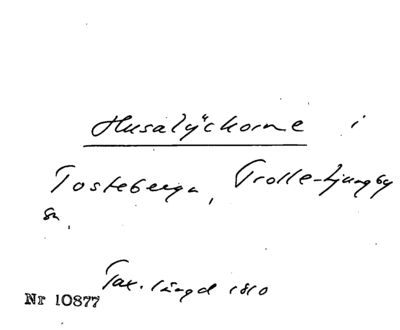 Husalÿckorne i
Tosteberga, Trolle-Ljungby
sn.
Tax. längd 1810
Nr 10877